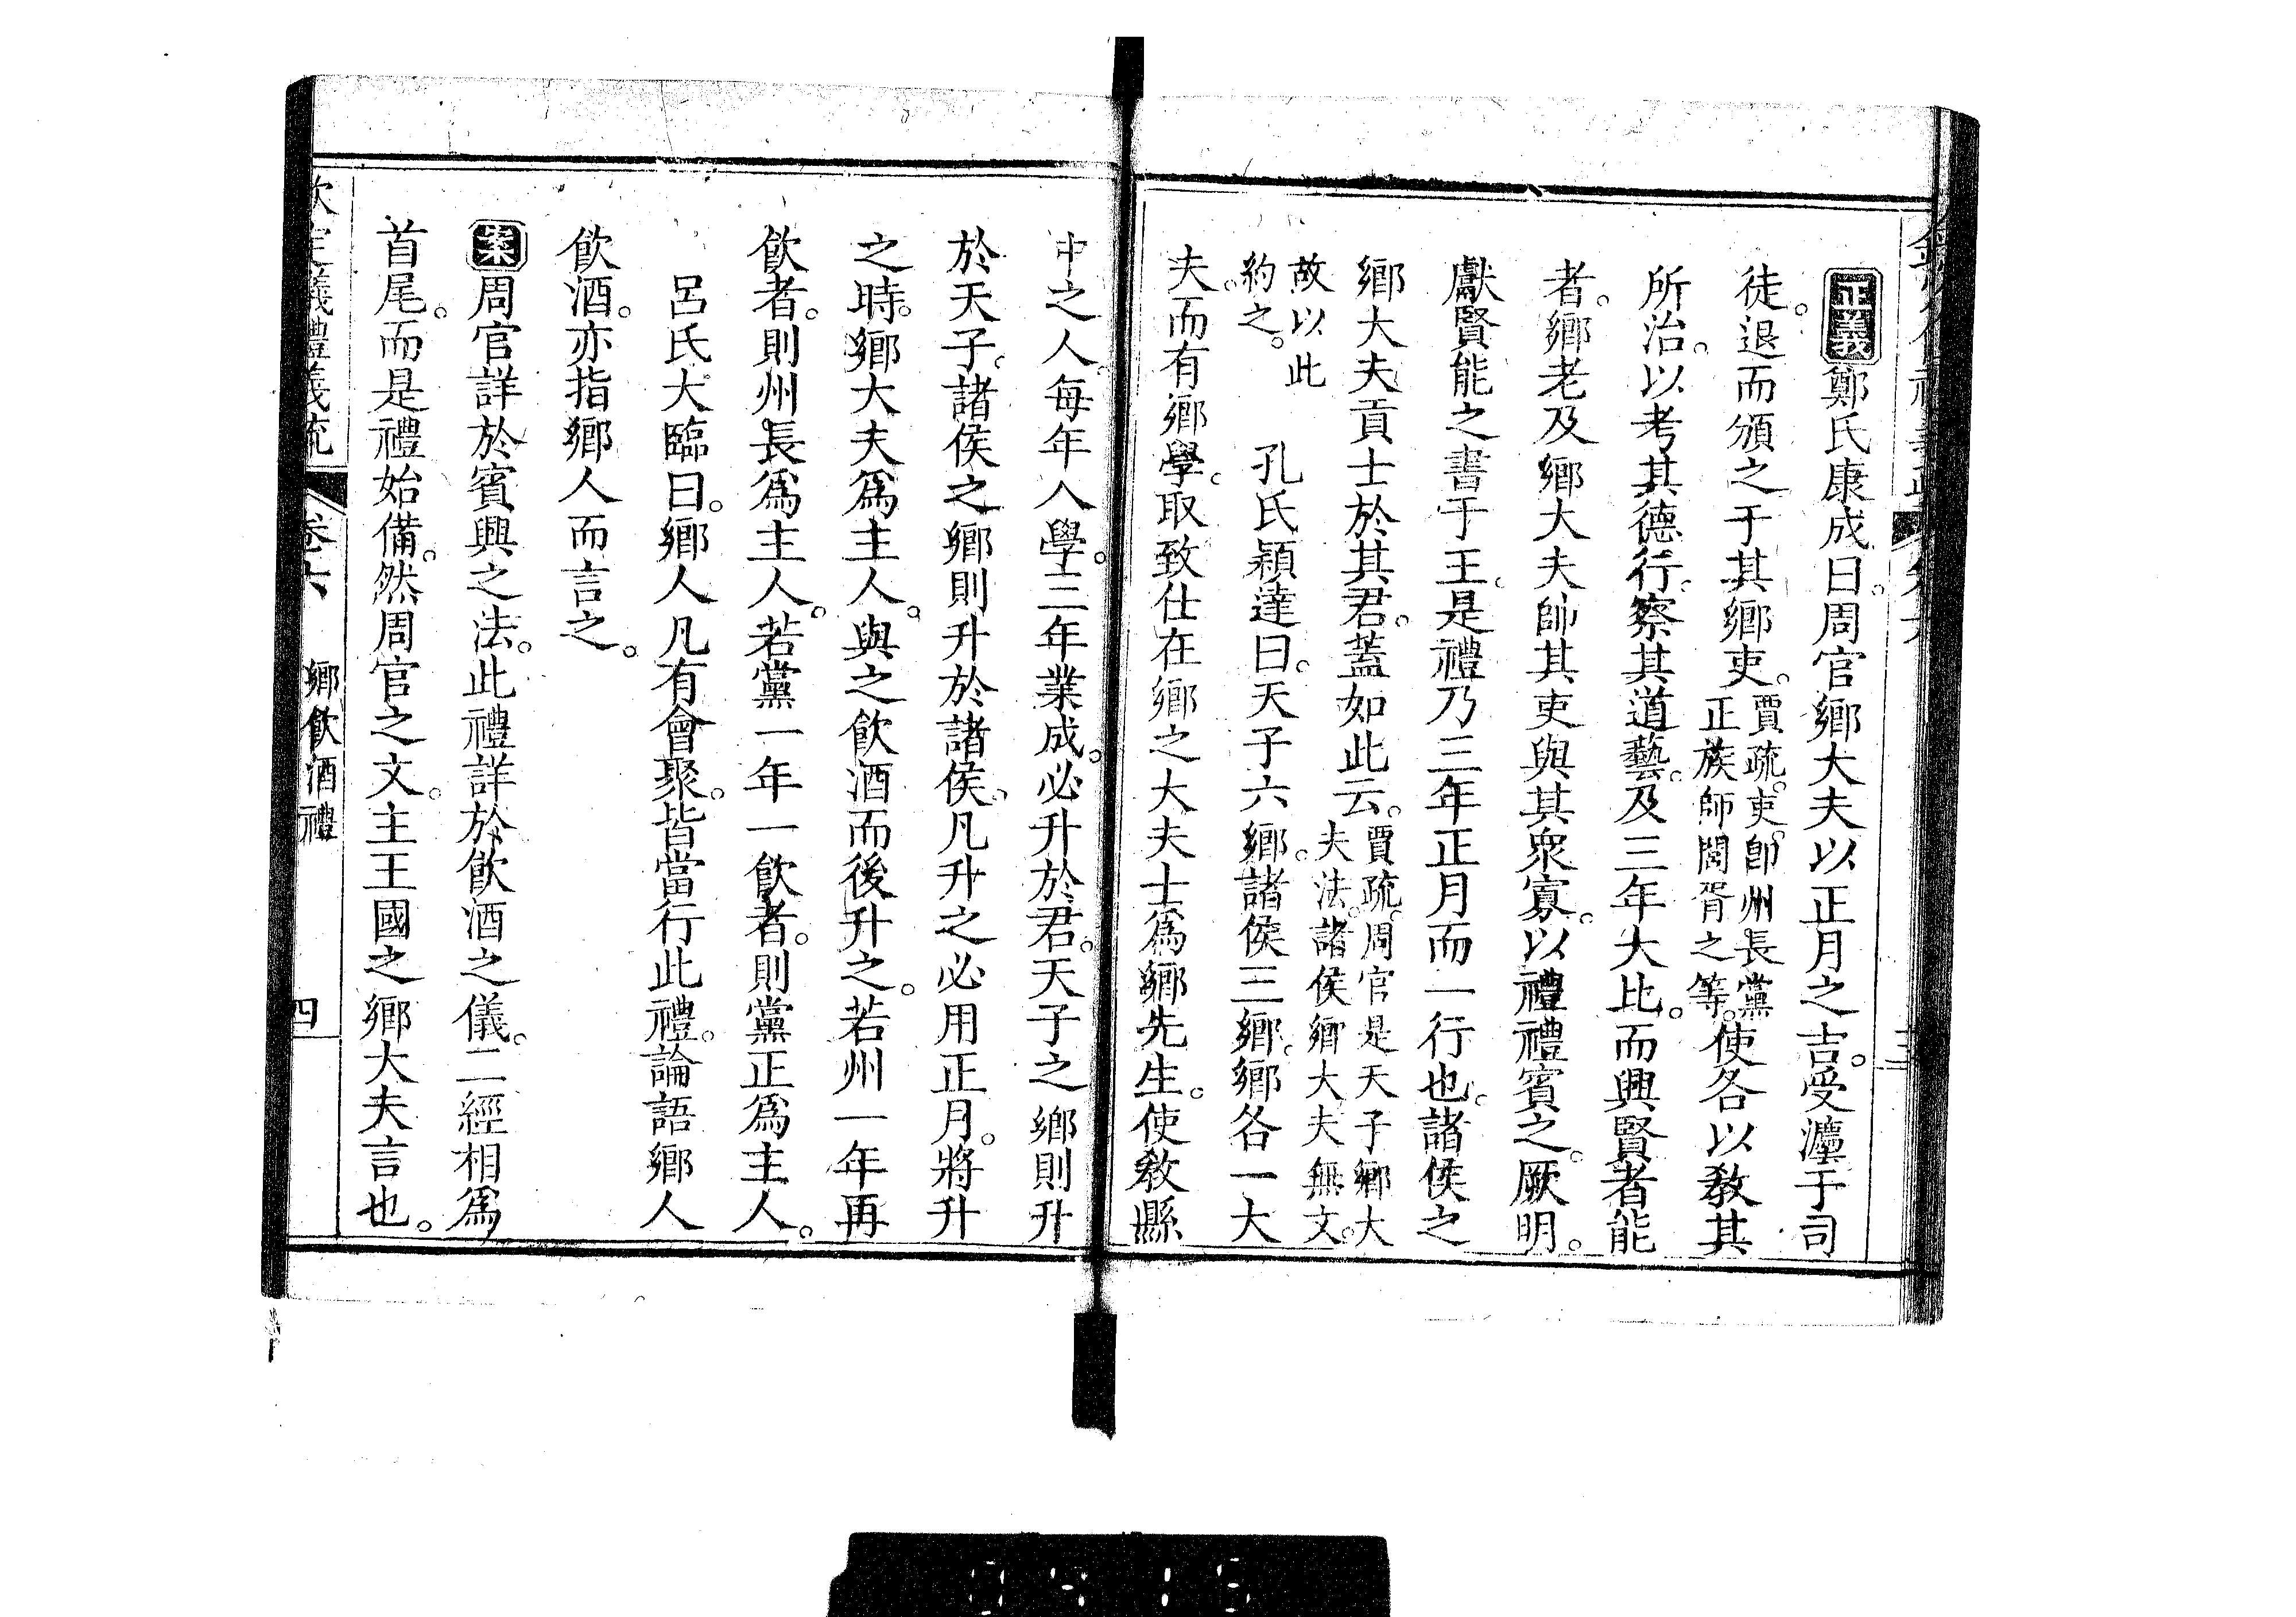 正義鄭氏康成曰。周官鄉大夫以正月之吉。受灋于司
徒。退而頒之于其鄉吏。賈疏。吏。卽州長黨正族師閭胥之等。使各以敎其
所治。以考其德行。察其道藝。及三年大比。而興賢者能
者。鄉老及鄉大夫帥其吏與其衆寡。以禮禮賓之。厥明。
獻賢能之書于王。是禮乃三年正月而一行也。諸侯之
鄉大夫貢士於其君。蓋如此云。賈疏。周官是天子鄉大夫法。諸侯鄉大夫無文。
故以此約之。 孔氏穎達曰。天子六鄉。諸侯三鄉。鄉各一大
夫。而有鄉學。取致仕在鄉之大夫士爲鄉先生。使敎縣
中之人。每年入學。三年業成。必升於君。天子之鄉則升
於天子。諸侯之鄉則升於諸侯。凡升之必用正月。將升
之時。鄉大夫爲主人。與之飮酒而後升之。若州一年再
飮者。則州長爲主人。若黨一年一飮者。則黨正爲主人。
呂氏大臨曰。鄉人凡有會聚。皆當行此禮。論語鄉人
飮酒。亦指鄉人而言之。
案周官詳於賓興之法。此禮詳於飮酒之儀。二經相爲
首尾。而是禮始備。然周官之文。主王國之鄉大夫言也。
欽定儀禮義疏 卷六 鄉飮酒禮 四